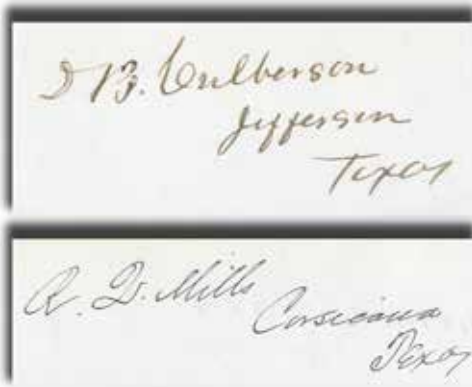 D B. Culberson
Jefferson
Texas
R. Q. Mills
Corsicana
Texas